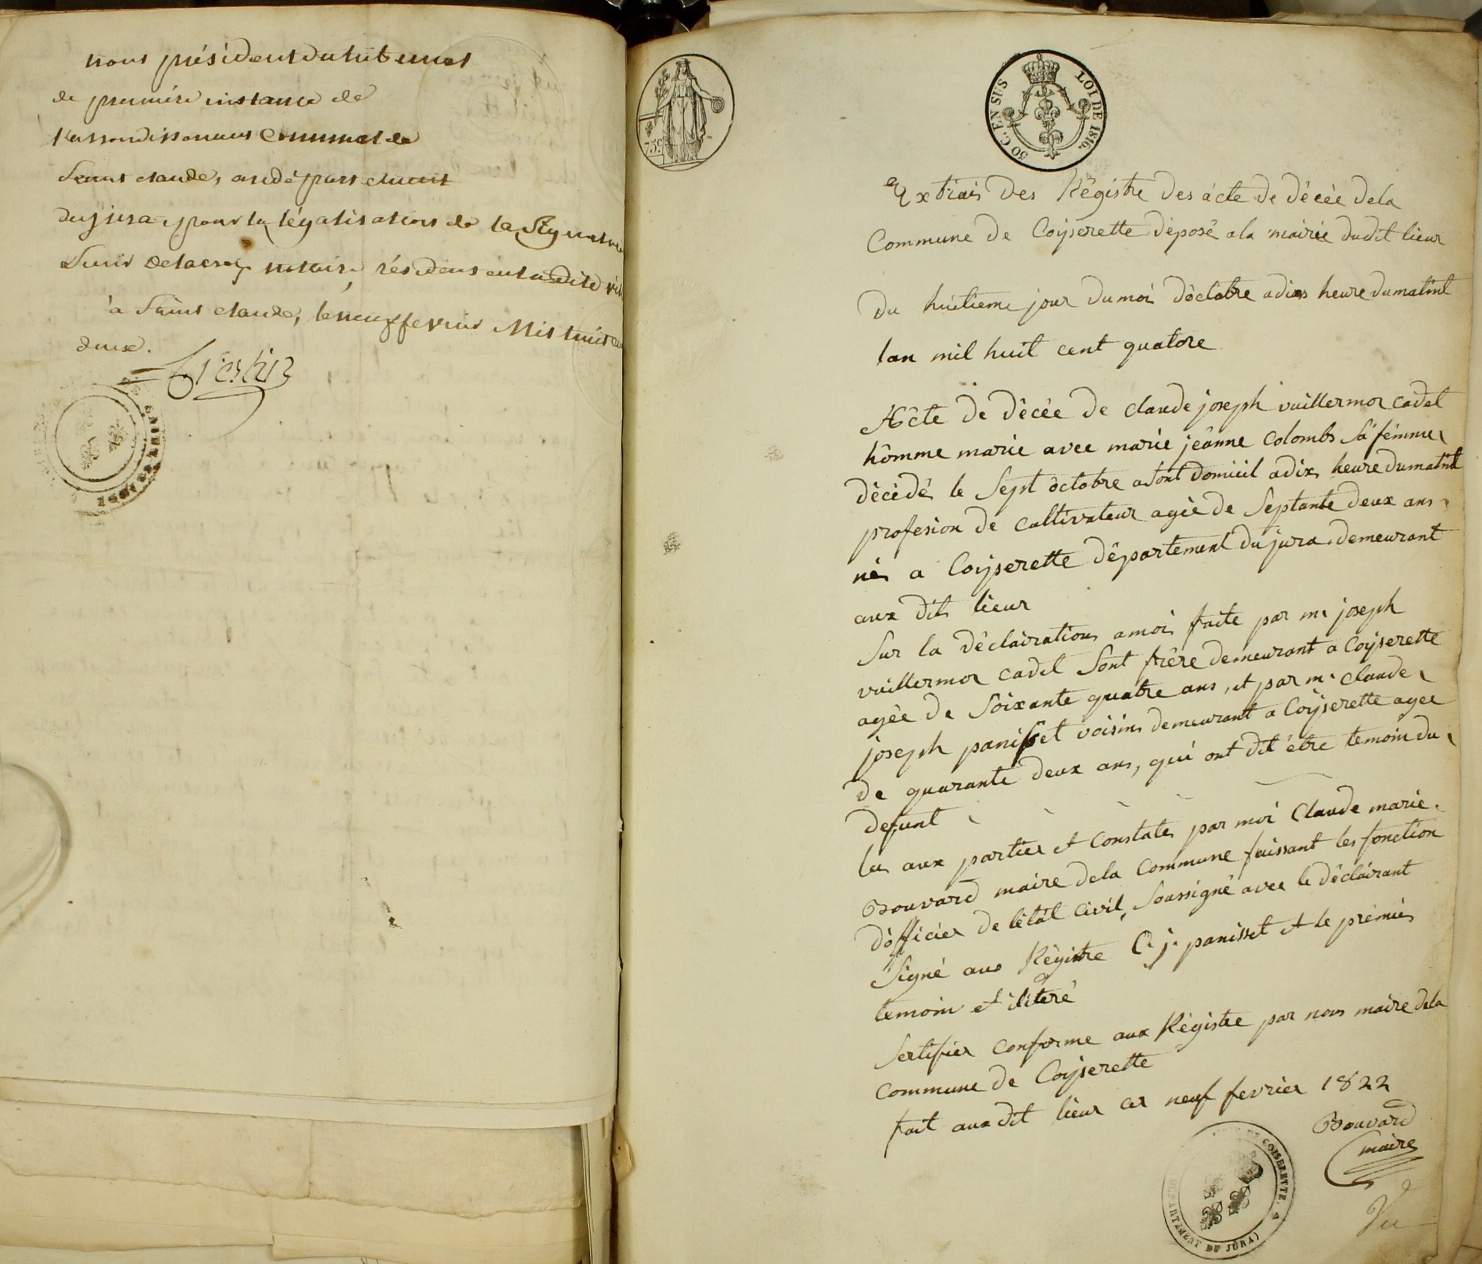 nous président du tribunal
de première instance de
l'arrondissement communal de
Saint Claude, au département
du jura, pour la légalisation de la Signature
notaire, résident en la dite
à Saint Claude, le neuf fevrier Mil huit
deux.
75c
50 C. EN SUS
LOI DE 1816.
Extrais des Régistre des ácte de décèe dela
Commune de Coyserette déposé ala mairie dudit lieur
Du huitieme jour du moi d'octobre a dixs heure dumatint
lan mil huit cent quatore
Acte de décèe de claude joseph vuillermoz cadet
hômme marie avec marie jeânne Colombs sá femme
décédé le Sept octobre a sont domicil a dix heure dumatint
profesion de cultivateur agée de Septante deux ans
né a Coyserette département du jura demeurant
aux dit lieur
Sur la déclairation a moi faite par mr joseph
vuillermoz cadet Sont frère demeurant a Coyserette
agée de Soixante quatre ans, et par mr Claude
joseph panisset voisin demeurant a Coyserette agee
de quarante deux ans, qui ont dit étre temoin du
defunt
lu aux parties et Constaté par moi Claude marie
Bouvard maire dela Commune faissant les fonction
d'officier de létat Civil, Soussigné avec le déclairant
Signé aux Régistre C. j. panisset et le prémié
temoin et ilitéré
Sertifier conforme aux Régistre par nous maire dela
Commune de Coyserette
fait aux dit lieur ce neuf fevrier 1822
Bouvard
maire
Vu
DE COISERETTE
DU JURA)